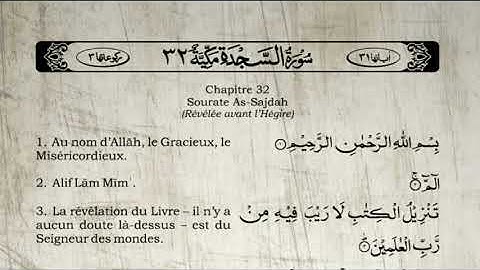 اٰیاتها ٣١ سُوْرَةُ السَّجْدَةِ مَكِّيَّةٌ ٣٢ رکوعاتها ٣
Chapitre 32
Sourate As-Sajdah
(Révélée avant l’Hégire)
1. Au nom d’Allāh, le Gracieux, le
Miséricordieux.
بِسْمِ اللّٰهِ الرَّحْمٰنِ الرَّحِيْمِ ①
2. Alif Lām Mīm .
الٓمّٓ ②
3. La révélation du Livre – il n’y a
aucun doute là-dessus – est du
Seigneur des mondes.
تَنْزِيْلُ الْكِتٰبِ لَا رَيْبَ فِيْهِ مِنْ
رَّبِّ الْعٰلَمِيْنَ ③